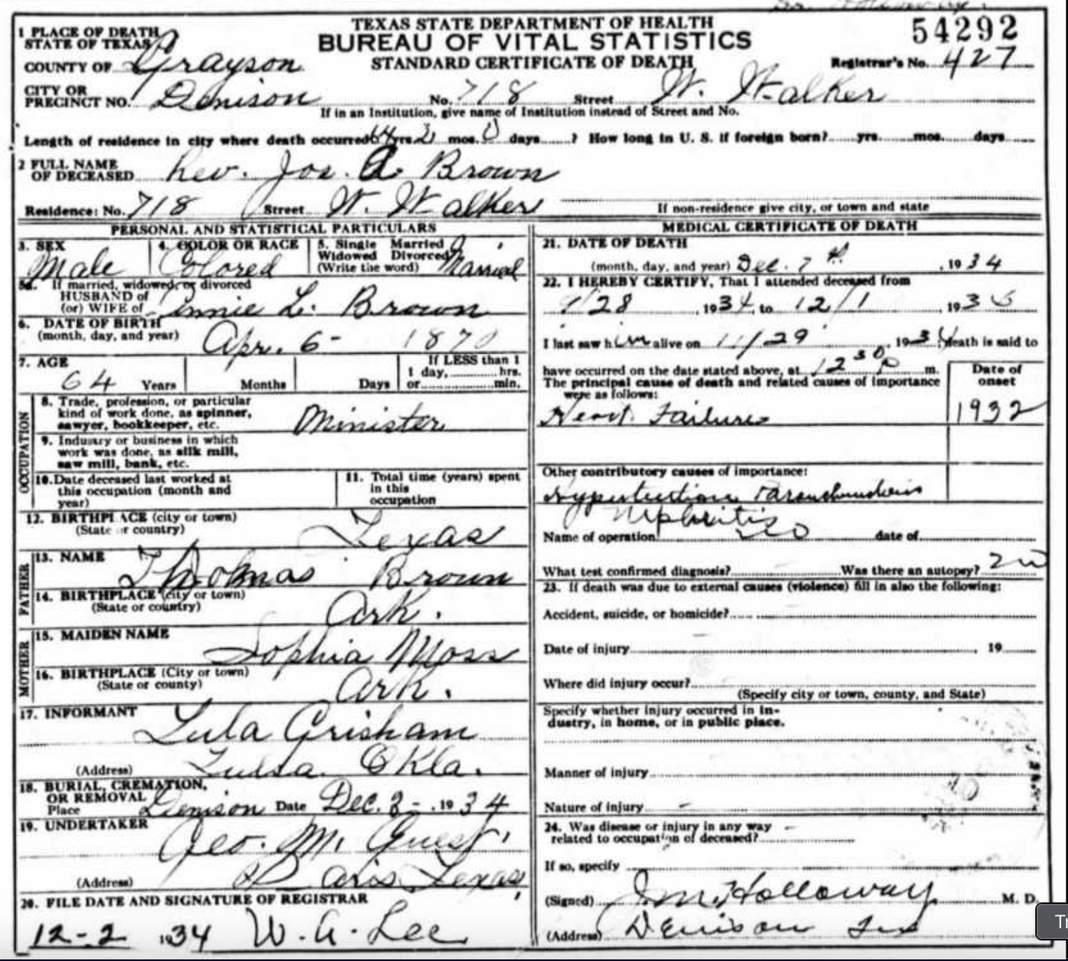 TEXAS STATE DEPARTMENT OF HEALTH
BUREAU OF VITAL STATISTICS
STANDARD CERTIFICATE OF DEATH
54292
Registrar's No. 427
1 PLACE OF DEATH
STATE OF TEXAS
COUNTY OF Grayson
CITY OR
PRECINCT NO. Denison No. 718 Street W. Walker
If in an Institution, give name of Institution instead of Street and No.
Length of residence in city where death occurred 64 yrs. mos. days? How long in U. S. if foreign born? yrs. mos. days
2 FULL NAME
OF DECEASED Rev. Jos. A. Brown
Residence: No. 718 Street W. Walker
If non-residence give city, or town and state
PERSONAL AND STATISTICAL PARTICULARS
3. SEX
Male
4. COLOR OR RACE
Colored
5. Single Married
Widowed Divorced
(Write the word) Married
5a. If married, widowed, or divorced
HUSBAND of
(or) WIFE of Annie L. Brown
6. DATE OF BIRTH
(month, day, and year) Apr. 6- 1870
7. AGE
64 Years Months Days
If LESS than 1
1 day, hrs.
or min.
OCCUPATION
8. Trade, profession, or particular
kind of work done, as spinner,
sawyer, bookkeeper, etc. Minister
9. Industry or business in which
work was done, as silk mill,
saw mill, bank, etc.
10. Date deceased last worked at
this occupation (month and
year)
11. Total time (years) spent
in this
occupation
12. BIRTHPLACE (city or town)
(State or country) Texas
FATHER
13. NAME Thomas Brown
14. BIRTHPLACE (city or town)
(State or country) Ark.
MOTHER
15. MAIDEN NAME Sophia Moss
16. BIRTHPLACE (City or town)
(State or county) Ark.
17. INFORMANT Lula Grisham
(Address) Tulsa Okla.
18. BURIAL, CREMATION,
OR REMOVAL
Place Denison Date Dec. 1934
19. UNDERTAKER Geo. M. Guest
(Address) Paris Texas
20. FILE DATE AND SIGNATURE OF REGISTRAR
12-2 1934 W. A. Lee
MEDICAL CERTIFICATE OF DEATH
21. DATE OF DEATH
(month, day, and year) Dec. , 1934
22. I HEREBY CERTIFY, That I attended deceased from
9/28 1934 to 12/1 193
I last saw him alive on 11/29, 1934 death is said to
have occurred on the date stated above, at 12 30 P m.
The principal cause of death and related causes of importance
were as follows:
Date of
onset
Heart Failure 1932
Other contributory causes of importance:
Hypertension Parenchymatous
Nephritis
Name of operation date of
What test confirmed diagnosis? Was there an autopsy? no
23. If death was due to external causes (violence) fill in also the following:
Accident, suicide, or homicide?
Date of injury , 19
Where did injury occur?
(Specify city or town, county, and State)
Specify whether injury occurred in in-
dustry, in home, or in public place.
Manner of injury
Nature of injury -
24. Was disease or injury in any way -
related to occupation of deceased?
If so, specify
(Signed) J. M. Holloway M. D.
(Address) Denison Tex